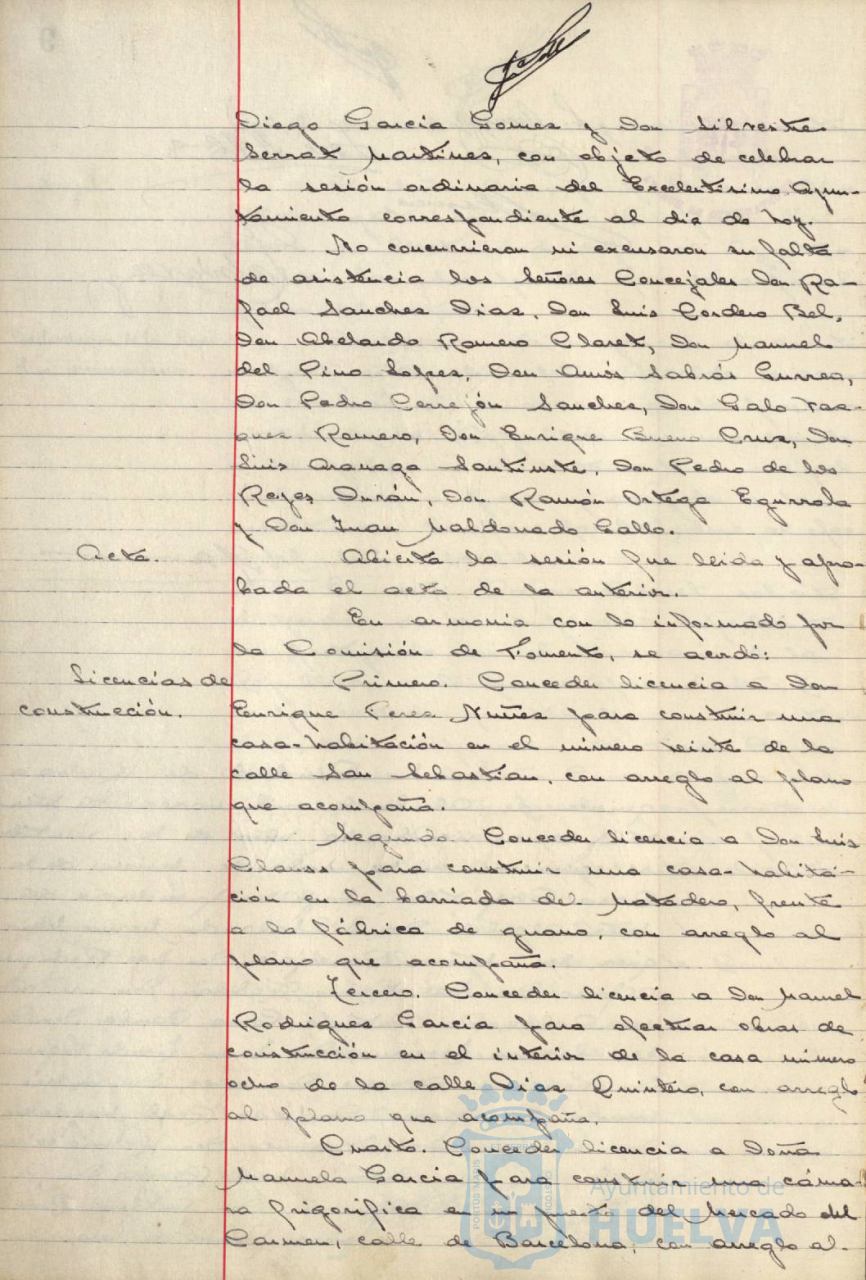 Diego García Gomez y Don Silvestre
Serrat Martinez, con objeto de celebrar
la sesión ordinaria del Excelentísimo Ayun-
tamiento correspondiente al dia de hoy.
No concurrieron ni excusaron su falta
de asistencia los Señores Concejales Don Ra-
fael Sanchez Diaz, Don Luis Cordero Bel,
Don Abelardo Romero Claret, Don Manuel
del Pino Lopez, Don Amós Sabrás Gurrea,
Don Pedro Cerrejón Sanchez, Don Galo Vaz-
quez Romero, Don Enrique Bueno Cruz, Don
Luis Aranaga Santinste, Don Pedro de los
Reyes Durán, Don Ramón Ortega Egurrola
y Don Juan Maldonado Gallo.
Acta.
Abierta la sesión fue leida y apro-
bada el acta de la anterior.
En armonia con lo informado por
la Comisión de Fomento, se acordó:
Licencias de
construcción.
Primero. Conceder licencia a Don
Enrique Perez Nuñez para construir una
casa-habitación en el número veinte de la
calle San Sebastian, con arreglo al plano
que acompaña.
Segundo. Conceder licencia a Don Luis
Clauss para construir una casa-habita-
ción en la barriada del Matadero, frente
a la fábrica de guano, con arreglo al
plano que acompaña.
Tercero. Conceder licencia a Don Manuel
Rodriguez García para efectuar obras de
construcción en el interior de la casa número
ocho de la calle Diaz Quintero, con arreglo
al plano que acompaña.
Cuarto. Conceder licencia a Doña
Manuela García para construir una cáma-
ra frigorifica en un puesto del Mercado del
Carmen, calle de Barcelona, con arreglo al
Ayuntamiento de
HUELVA